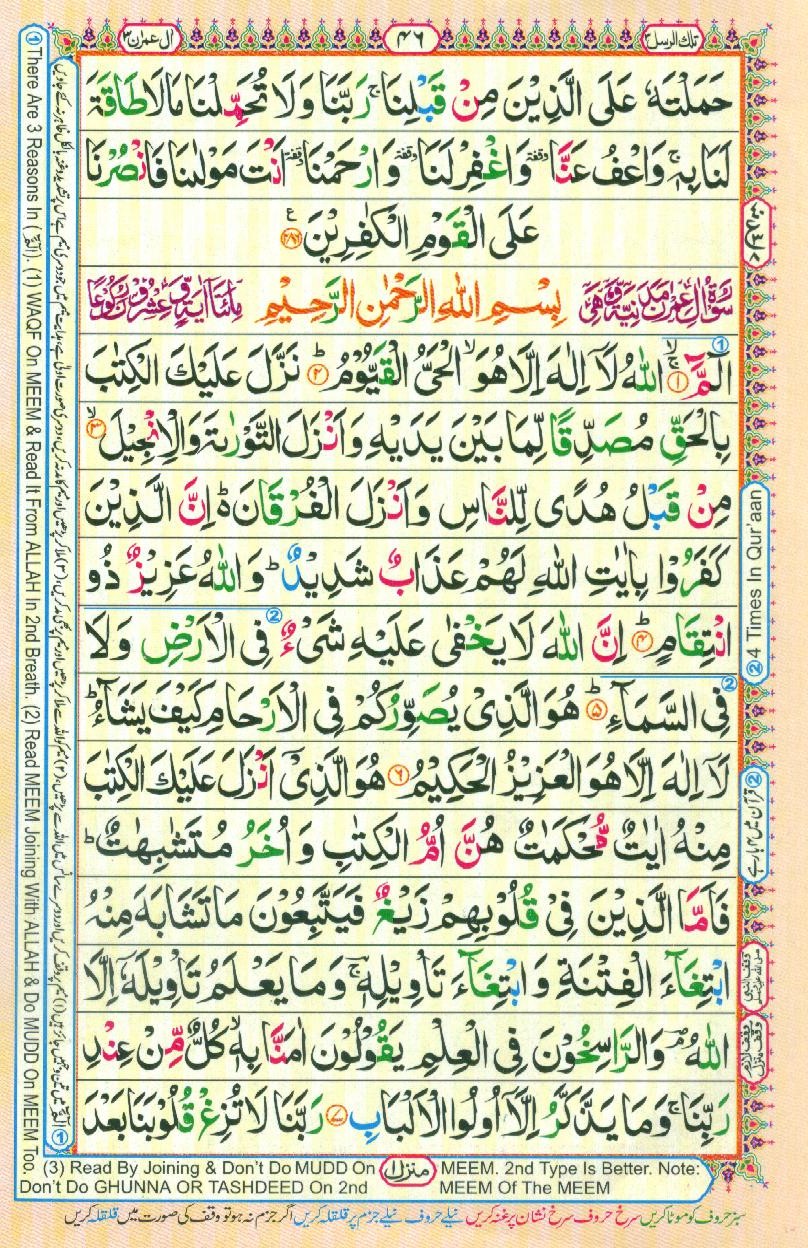 تلك الرسل ٣
٤٦
ال عمرٰن ٣
حَمَلْتَهٗ عَلَى الَّذِيْنَ مِنْ قَبْلِنَا ۚ رَبَّنَا وَلَا تُحَمِّلْنَا مَا لَا طَاقَةَ
لَنَا بِهٖ ۚ وَاعْفُ عَنَّا ۥ وقفة وَاغْفِرْ لَنَا ۥ وقفة وَارْحَمْنَا ۥ وقفة اَنْتَ مَوْلٰىنَا فَانْصُرْنَا
عَلَى الْقَوْمِ الْكٰفِرِيْنَ ﴿۲۸۶﴾ ع
سُوْرَةُ اٰلِ عِمْرٰنَ مَدَنِيَّةٌ وَّهِيَ بِسْمِ اللّٰهِ الرَّحْمٰنِ الرَّحِيْمِ مِائَتَا اٰيَةٍ وَّعِشْرُوْنَ رُكُوْعًا
الٓمَّٓ ۙ ﴿۱﴾ اللّٰهُ لَاۤ اِلٰهَ اِلَّا هُوَ ۙ الْحَىُّ الْقَيُّوْمُ ؕ ﴿۲﴾ نَزَّلَ عَلَيْكَ الْكِتٰبَ
بِالْحَقِّ مُصَدِّقًا لِّمَا بَيْنَ يَدَيْهِ وَاَنْزَلَ التَّوْرٰىةَ وَالْاِنْجِيْلَ ۙ ﴿۳﴾
مِنْ قَبْلُ هُدًى لِّلنَّاسِ وَاَنْزَلَ الْفُرْقَانَ ؕ اِنَّ الَّذِيْنَ
كَفَرُوْا بِاٰيٰتِ اللّٰهِ لَهُمْ عَذَابٌ شَدِيْدٌ ؕ وَاللّٰهُ عَزِيْزٌ ذُو
انْتِقَامٍ ؕ ﴿۴﴾ اِنَّ اللّٰهَ لَا يَخْفٰى عَلَيْهِ شَىْءٌ فِى الْاَرْضِ وَلَا
فِى السَّمَآءِ ؕ ﴿۵﴾ هُوَ الَّذِىْ يُصَوِّرُكُمْ فِى الْاَرْحَامِ كَيْفَ يَشَآءُ ؕ
لَاۤ اِلٰهَ اِلَّا هُوَ الْعَزِيْزُ الْحَكِيْمُ ﴿۶﴾ هُوَ الَّذِىْۤ اَنْزَلَ عَلَيْكَ الْكِتٰبَ
مِنْهُ اٰيٰتٌ مُّحْكَمٰتٌ هُنَّ اُمُّ الْكِتٰبِ وَاُخَرُ مُتَشٰبِهٰتٌ ؕ
فَاَمَّا الَّذِيْنَ فِىْ قُلُوْبِهِمْ زَيْغٌ فَيَتَّبِعُوْنَ مَا تَشَابَهَ مِنْهُ
ابْتِغَآءَ الْفِتْنَةِ وَابْتِغَآءَ تَاْوِيْلِهٖ ۚ وَمَا يَعْلَمُ تَاْوِيْلَهٗۤ اِلَّا
اللّٰهُ ؔۘ وَالرّٰسِخُوْنَ فِى الْعِلْمِ يَقُوْلُوْنَ اٰمَنَّا بِهٖ ۙ كُلٌّ مِّنْ عِنْدِ
رَبِّنَا ۚ وَمَا يَذَّكَّرُ اِلَّاۤ اُولُوا الْاَلْبَابِ ﴿۷﴾ رَبَّنَا لَا تُزِغْ قُلُوْبَنَا بَعْدَ
① There Are 3 Reasons In (الٓمَّٓ). (1) WAQF On MEEM & Read It From ALLAH In 2nd Breath. (2) Read MEEM Joining With ALLAH & Do MUDD On MEEM Too.
② 4 Times In Qur'aan
(3) Read By Joining & Don't Do MUDD On منزل ۱ MEEM. 2nd Type Is Better. Note:
Don't Do GHUNNA OR TASHDEED On 2nd MEEM Of The MEEM
سبز حروف کو موٹا کریں سرخ حروف سرخ نشان پر غنہ کریں نیلے حروف نیلے جزم پر قلقلہ کریں اگر جزم نہ ہو تو وقف کی صورت میں قلقلہ کریں